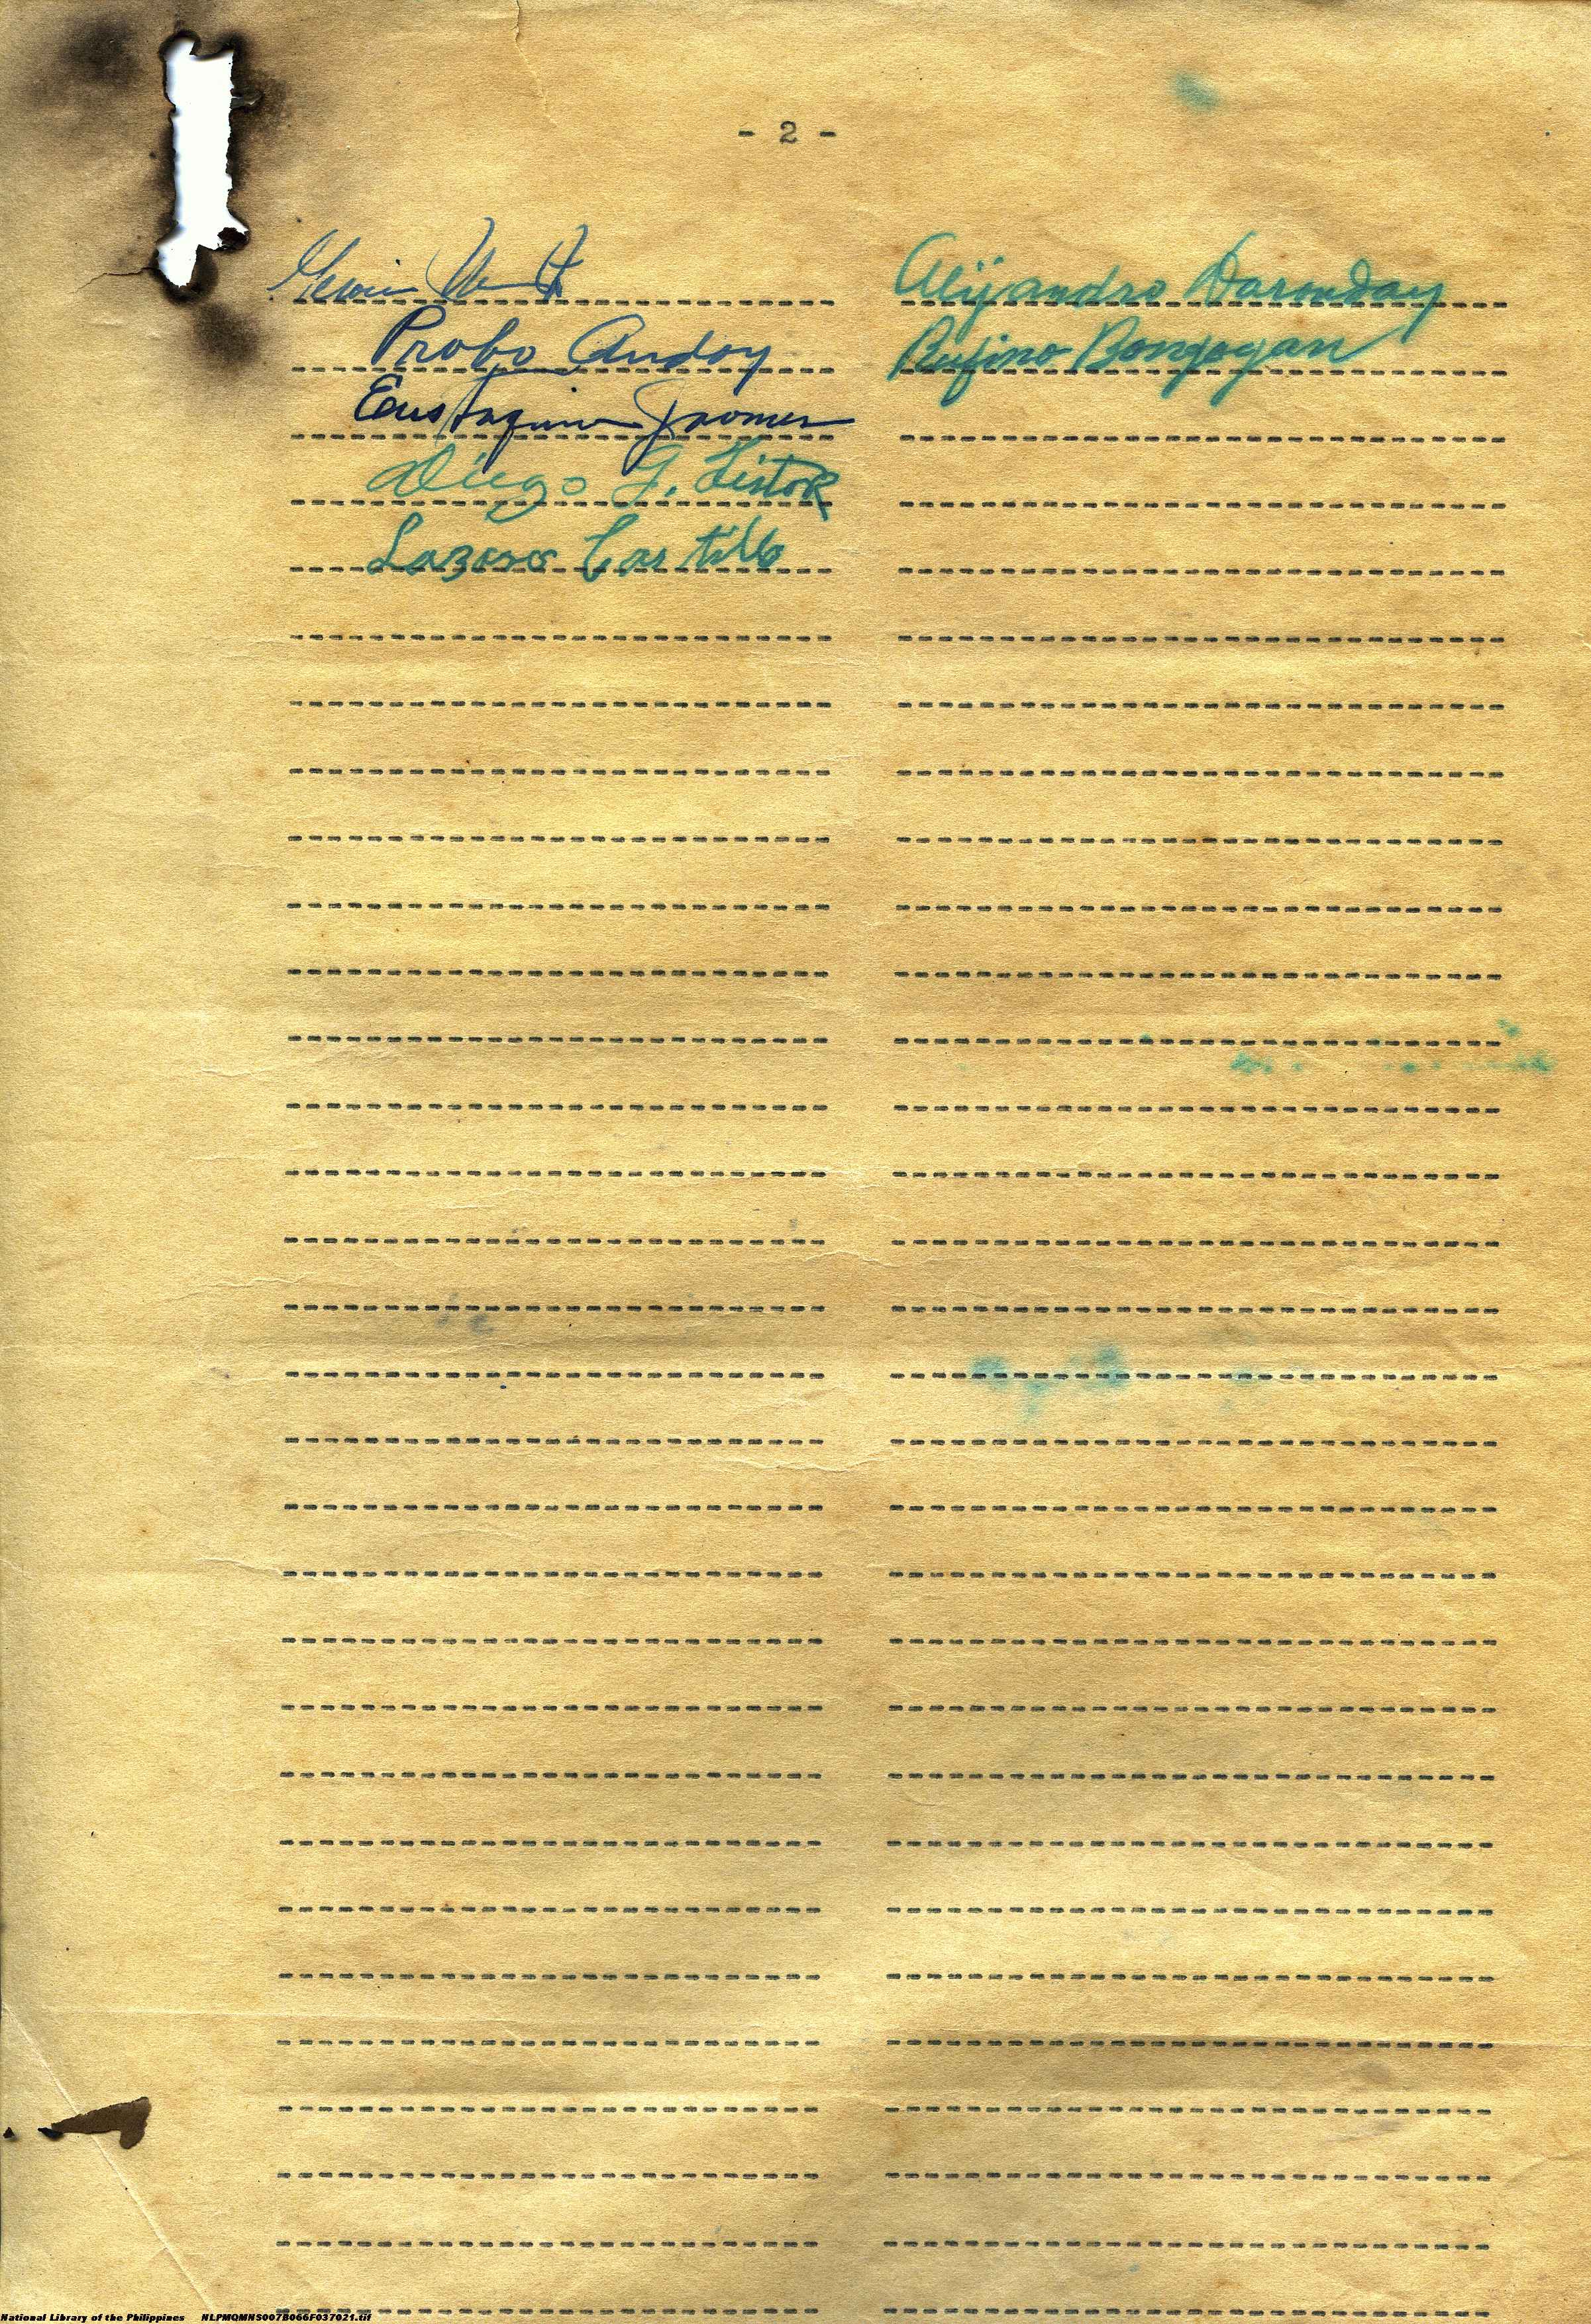 - 2 -
Probo Anday
Eustaquio
Diego G. Listor
Lazaro Castillo
Alijandro Darunday
Rufino Bongogan
National Library of the Philippines NLPMQMNS007B066F037021.tif